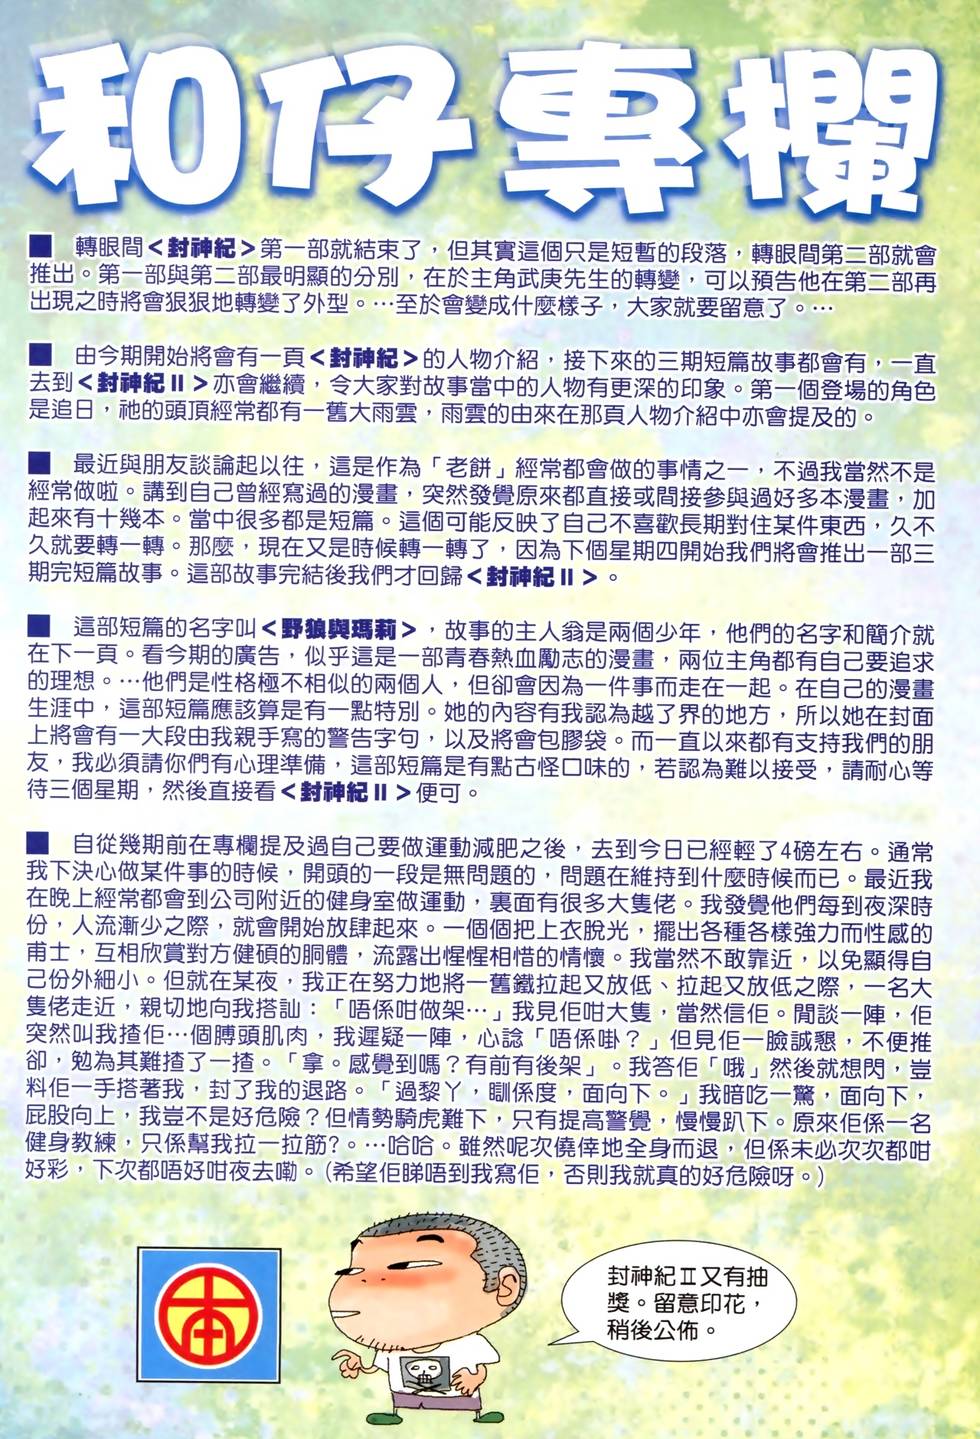 和仔專欄
■ 轉眼間＜封神紀＞第一部就結束了，但其實這個只是短暫的段落，轉眼間第二部就會
推出。第一部與第二部最明顯的分別，在於主角武庚先生的轉變，可以預告他在第二部再
出現之時將會狠狠地轉變了外型。…至於會變成什麼樣子，大家就要留意了。…
■ 由今期開始將會有一頁＜封神紀＞的人物介紹，接下來的三期短篇故事都會有，一直
去到＜封神紀Ⅱ＞亦會繼續，令大家對故事當中的人物有更深的印象。第一個登場的角色
是追日，祂的頭頂經常都有一舊大雨雲，雨雲的由來在那頁人物介紹中亦會提及的。
■ 最近與朋友談論起以往，這是作為「老餅」經常都會做的事情之一，不過我當然不是
經常做啦。講到自己曾經寫過的漫畫，突然發覺原來都直接或間接參與過好多本漫畫，加
起來有十幾本。當中很多都是短篇。這個可能反映了自己不喜歡長期對住某件東西，久不
久就要轉一轉。那麼，現在又是時候轉一轉了，因為下個星期四開始我們將會推出一部三
期完短篇故事。這部故事完結後我們才回歸＜封神紀Ⅱ＞。
■ 這部短篇的名字叫＜野狼與瑪莉＞，故事的主人翁是兩個少年，他們的名字和簡介就
在下一頁。看今期的廣告，似乎這是一部青春熱血勵志的漫畫，兩位主角都有自己要追求
的理想。…他們是性格極不相似的兩個人，但卻會因為一件事而走在一起。在自己的漫畫
生涯中，這部短篇應該算是有一點特別。她的內容有我認為越了界的地方，所以她在封面
上將會有一大段由我親手寫的警告字句，以及將會包膠袋。而一直以來都有支持我們的朋
友，我必須請你們有心理準備，這部短篇是有點古怪口味的，若認為難以接受，請耐心等
待三個星期，然後直接看＜封神紀Ⅱ＞便可。
■ 自從幾期前在專欄提及過自己要做運動減肥之後，去到今日已經輕了4磅左右。通常
我下決心做某件事的時候，開頭的一段是無問題的，問題在維持到什麼時候而已。最近我
在晚上經常都會到公司附近的健身室做運動，裏面有很多大隻佬。我發覺他們每到夜深時
份，人流漸少之際，就會開始放肆起來。一個個把上衣脫光，擺出各種各樣強力而性感的
甫士，互相欣賞對方健碩的胴體，流露出惺惺相惜的情懷。我當然不敢靠近，以免顯得自
己份外細小。但就在某夜，我正在努力地將一舊鐵拉起又放低、拉起又放低之際，一名大
隻佬走近，親切地向我搭訕：「唔係咁做架…」我見佢咁大隻，當然信佢。閒談一陣，佢
突然叫我揸佢…個膊頭肌肉，我遲疑一陣，心諗「唔係啩？」但見佢一臉誠懇，不便推
卻，勉為其難揸了一揸。「拿。感覺到嗎？有前有後架」。我答佢「哦」然後就想閃，豈
料佢一手搭著我，封了我的退路。「過黎丫，瞓係度，面向下。」我暗吃一驚，面向下，
屁股向上，我豈不是好危險？但情勢騎虎難下，只有提高警覺，慢慢趴下。原來佢係一名
健身教練，只係幫我拉一拉筋?。…哈哈。雖然呢次僥倖地全身而退，但係未必次次都咁
好彩，下次都唔好咁夜去嘞。(希望佢睇唔到我寫佢，否則我就真的好危險呀。)
封神紀Ⅱ又有抽
獎。留意印花，
稍後公佈。